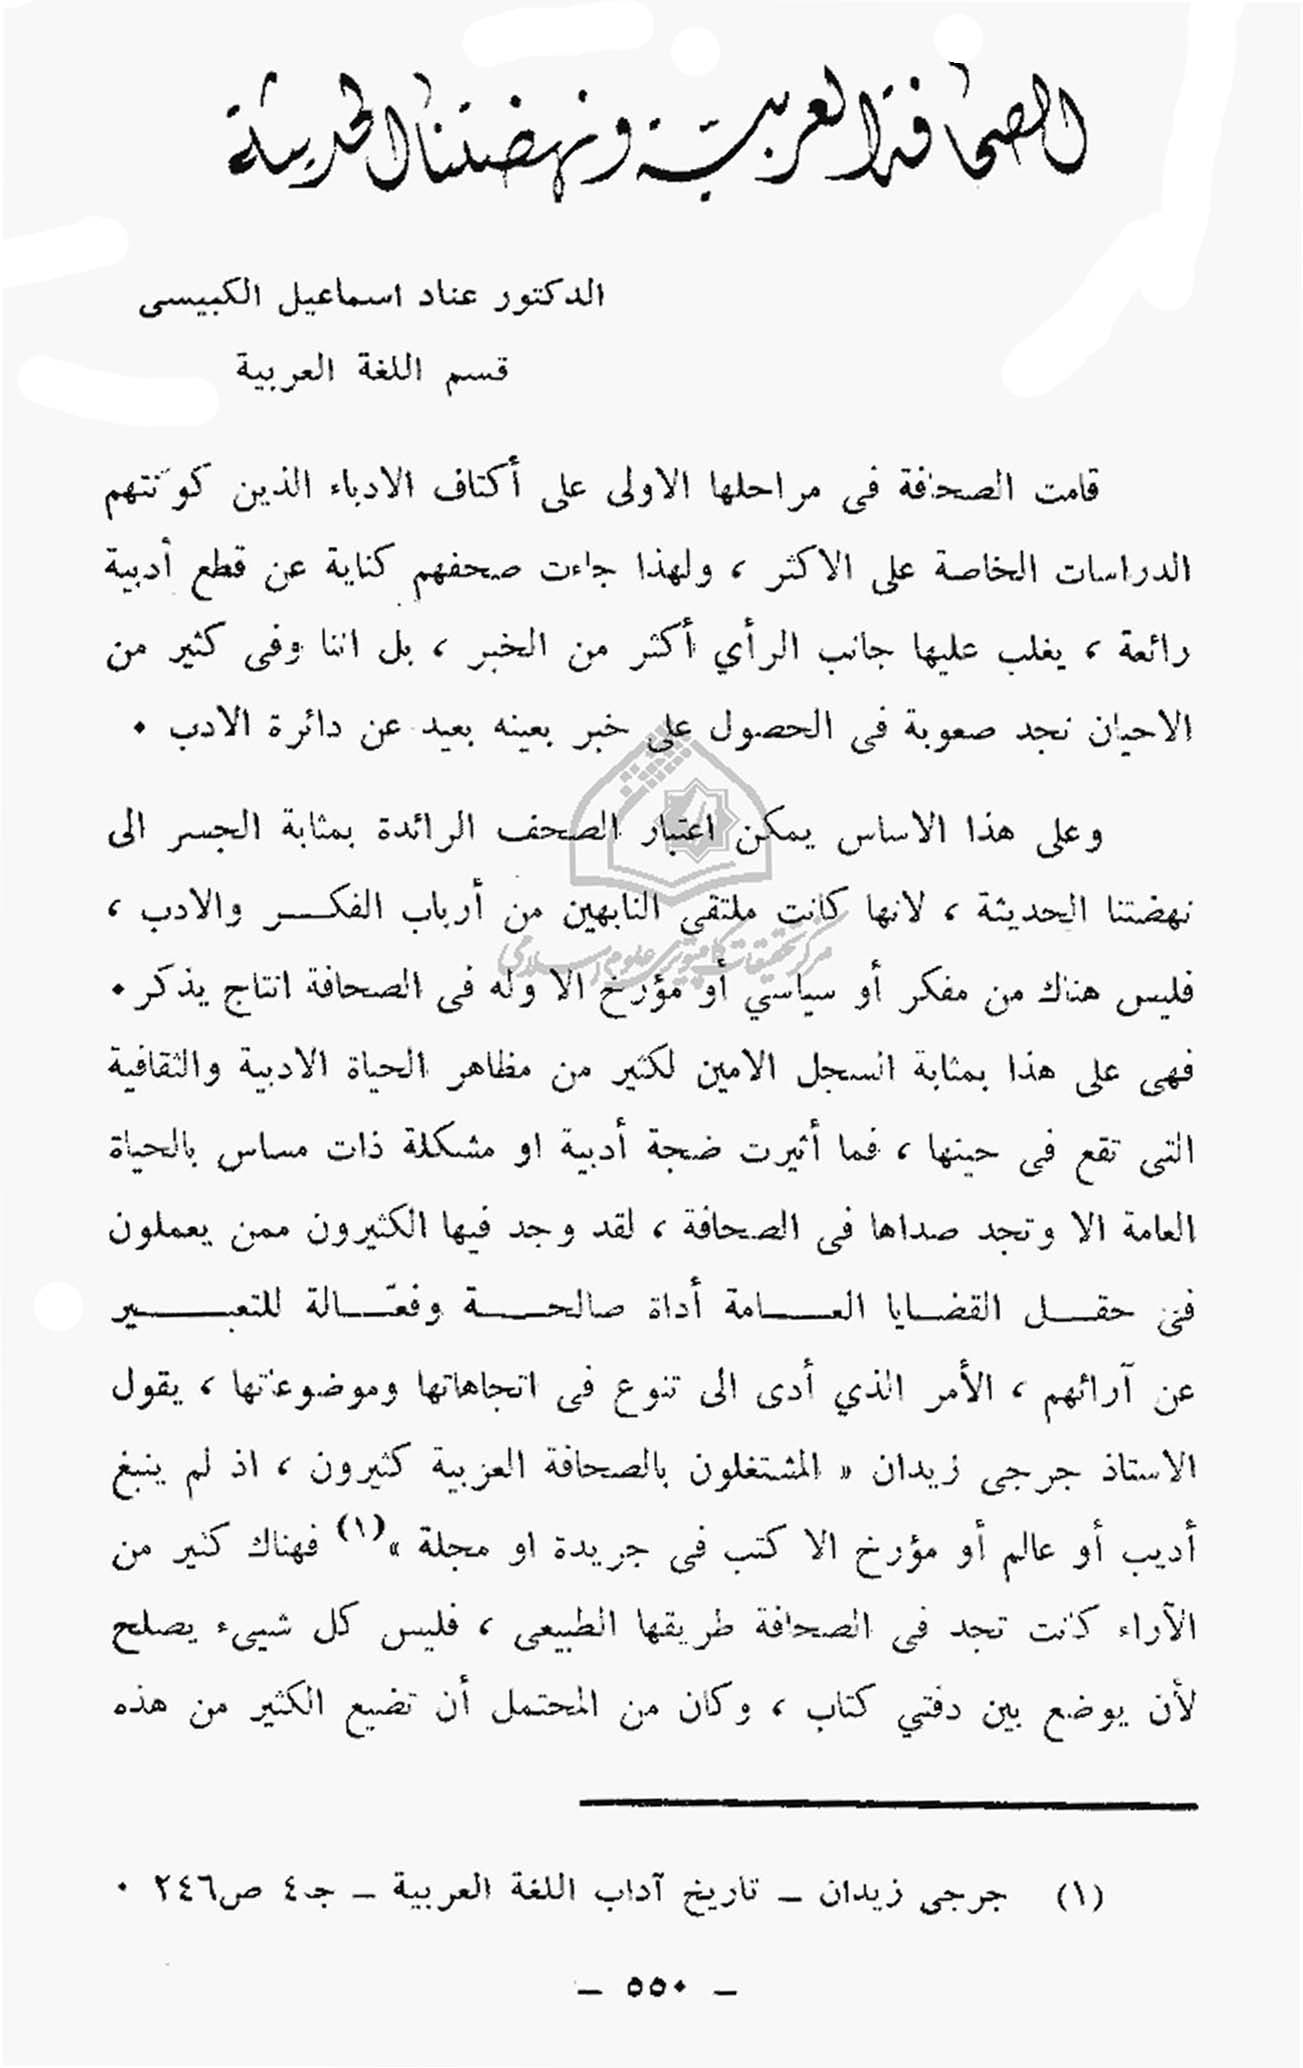 الصحافة العربية ونهضتنا الحديثة
الدكتور عناد اسماعيل الكبيسى
قسم اللغة العربية
قامت الصحافة فى مراحلها الاولى على أكتاف الادباء الذين كونتهم
الدراسات الخاصة على الاكثر ، ولهذا جاءت صحفهم كناية عن قطع أدبية
رائعة ، يغلب عليها جانب الرأي أكثر من الخبر ، بل اننا وفى كثير من
الاحيان نجد صعوبة فى الحصول على خبر بعينه بعيد عن دائرة الادب ٠
وعلى هذا الاساس يمكن اعتبار الصحف الرائدة بمثابة الجسر الى
نهضتنا الحديثة ، لانها كانت ملتقى النابهين من أرباب الفكر والادب ،
فليس هناك من مفكر أو سياسي أو مؤرخ الا وله فى الصحافة انتاج يذكر ٠
فهى على هذا بمثابة السجل الامين لكثير من مظاهر الحياة الادبية والثقافية
التى تقع فى حينها ، فما أثيرت ضجة أدبية او مشكلة ذات مساس بالحياة
العامة الا وتجد صداها فى الصحافة ، لقد وجد فيها الكثيرون ممن يعملون
فى حقل القضايا العامة أداة صالحة وفعّالة للتعبير
عن آرائهم ، الأمر الذي أدى الى تنوع فى اتجاهاتها وموضوعاتها ، يقول
الاستاذ جرجى زيدان « المشتغلون بالصحافة العربية كثيرون ، اذ لم ينبغ
أديب أو عالم أو مؤرخ الا كتب فى جريدة او مجلة »(١) فهناك كثير من
الآراء كانت تجد فى الصحافة طريقها الطبيعى ، فليس كل شيىء يصلح
لأن يوضع بين دفتي كتاب ، وكان من المحتمل أن تضيع الكثير من هذه
(١) جرجى زيدان ــ تاريخ آداب اللغة العربية ــ جـ٤ ص٢٤٦ ٠
ــ ٥٥٠ ــ
مركز تحقيقات كامپيوترى علوم اسلامى